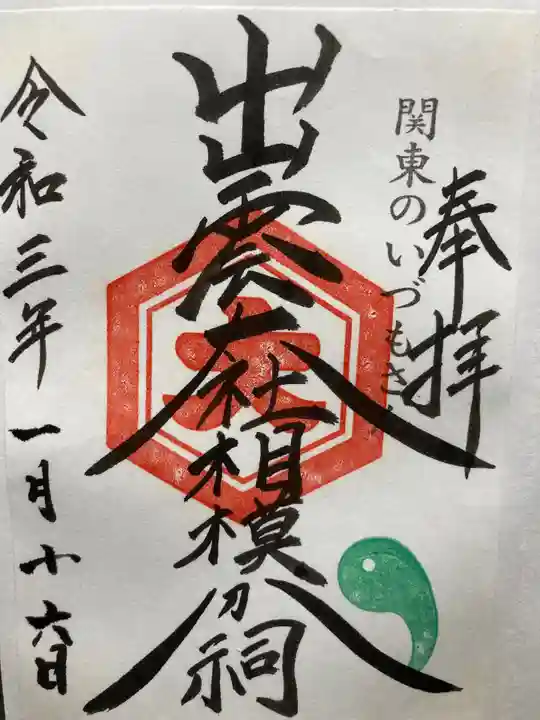 奉拝
関東のいづもさん
出雲大社相模分祠
大
令和三年一月十六日